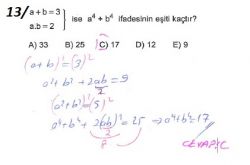 13/ a + b = 3
a.b = 2 } ise a⁴ + b⁴ ifadesinin eşiti kaçtır?
A) 33 B) 25 C) 17 D) 12 E) 9
(a+b)² = (3)²
a²+b²+2ab=9
2
(a²+b²)²=(5)²
a⁴+b⁴+2(ab)²=25 ⇒ a⁴+b⁴=17
2
8
CEVAP:C